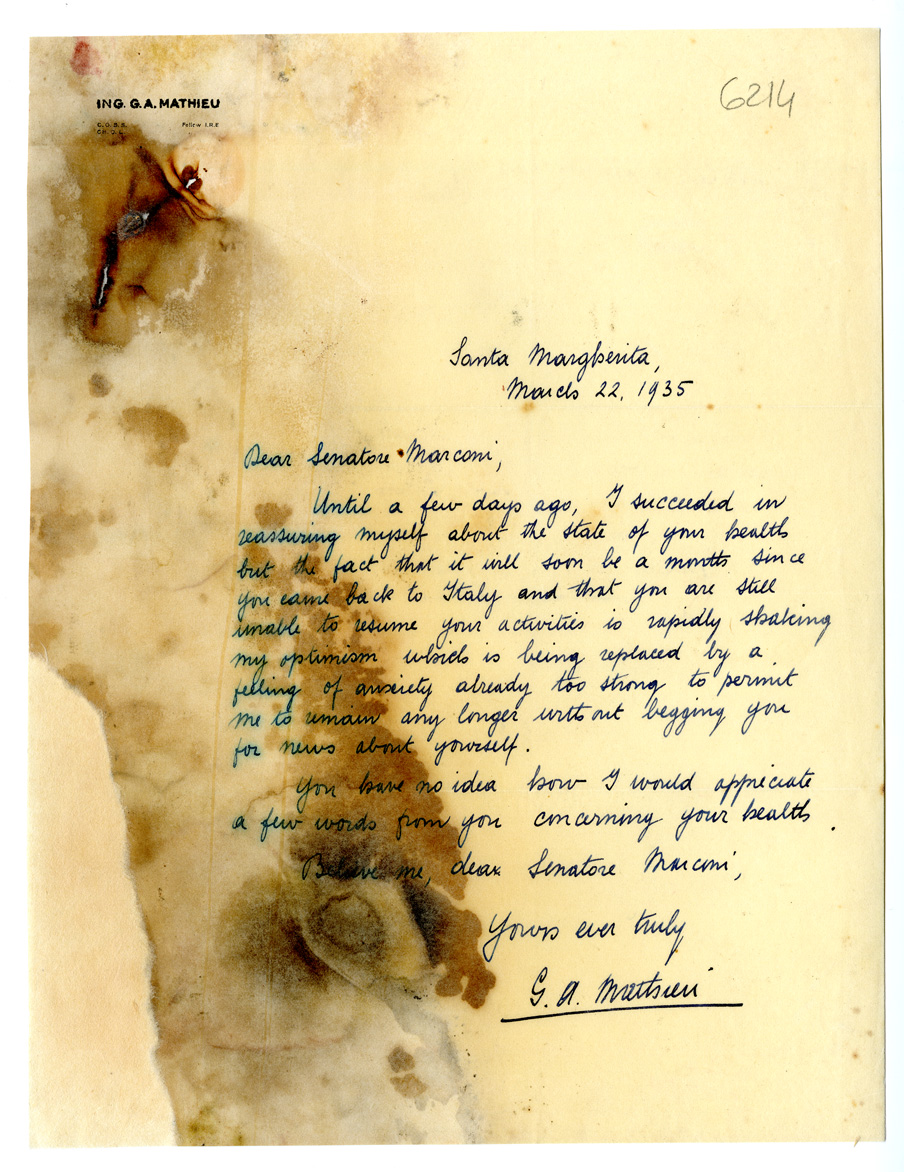 6214
ING. G.A. MATHIEU
Fellow I.R.E
Santa Margherita,
March 22, 1935
Dear Senatore Marconi,
Until a few days ago, I succeeded in
reassuring myself about the state of your health
but the fact that it will soon be a month since
you came back to Italy and that you are still
unable to resume your activities is rapidly shaking
my optimism which is being replaced by a
feeling of anxiety already too strong to permit
me to remain any longer without begging you
for news about yourself.
You have no idea how I would appreciate
a few words from you concerning your health.
Believe me, dear Senatore Marconi,
Yours ever truly
G. A. Mathieu